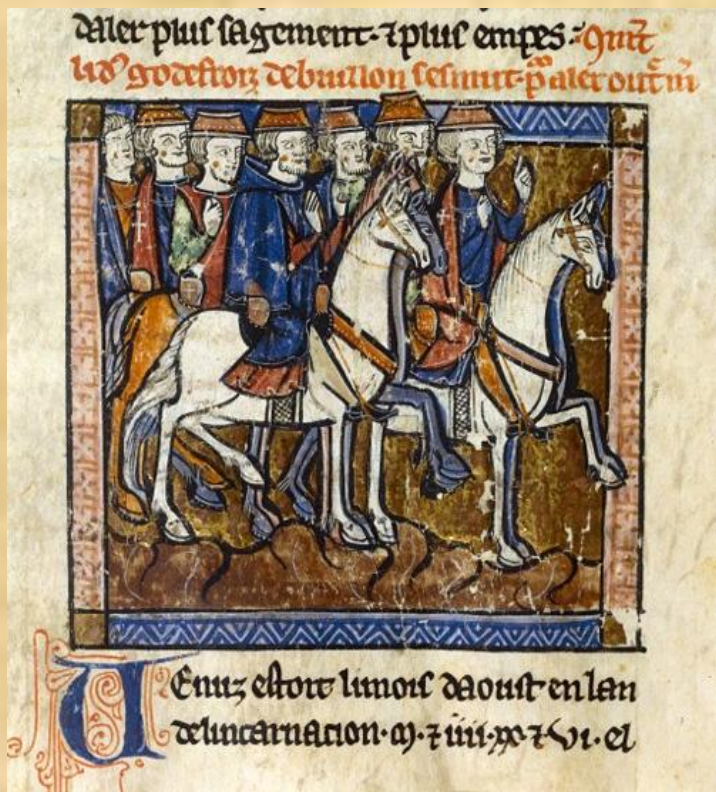 daler plus sagement. ⁊ plus empes: Quãt
li dꝰ godefroiz de buillon sesmut. pᵃ aler out̃ m̃
UEnuz estoit li mois daoust en lan
de lincarnacion. m. ⁊ iiii. xx ⁊ vi. el